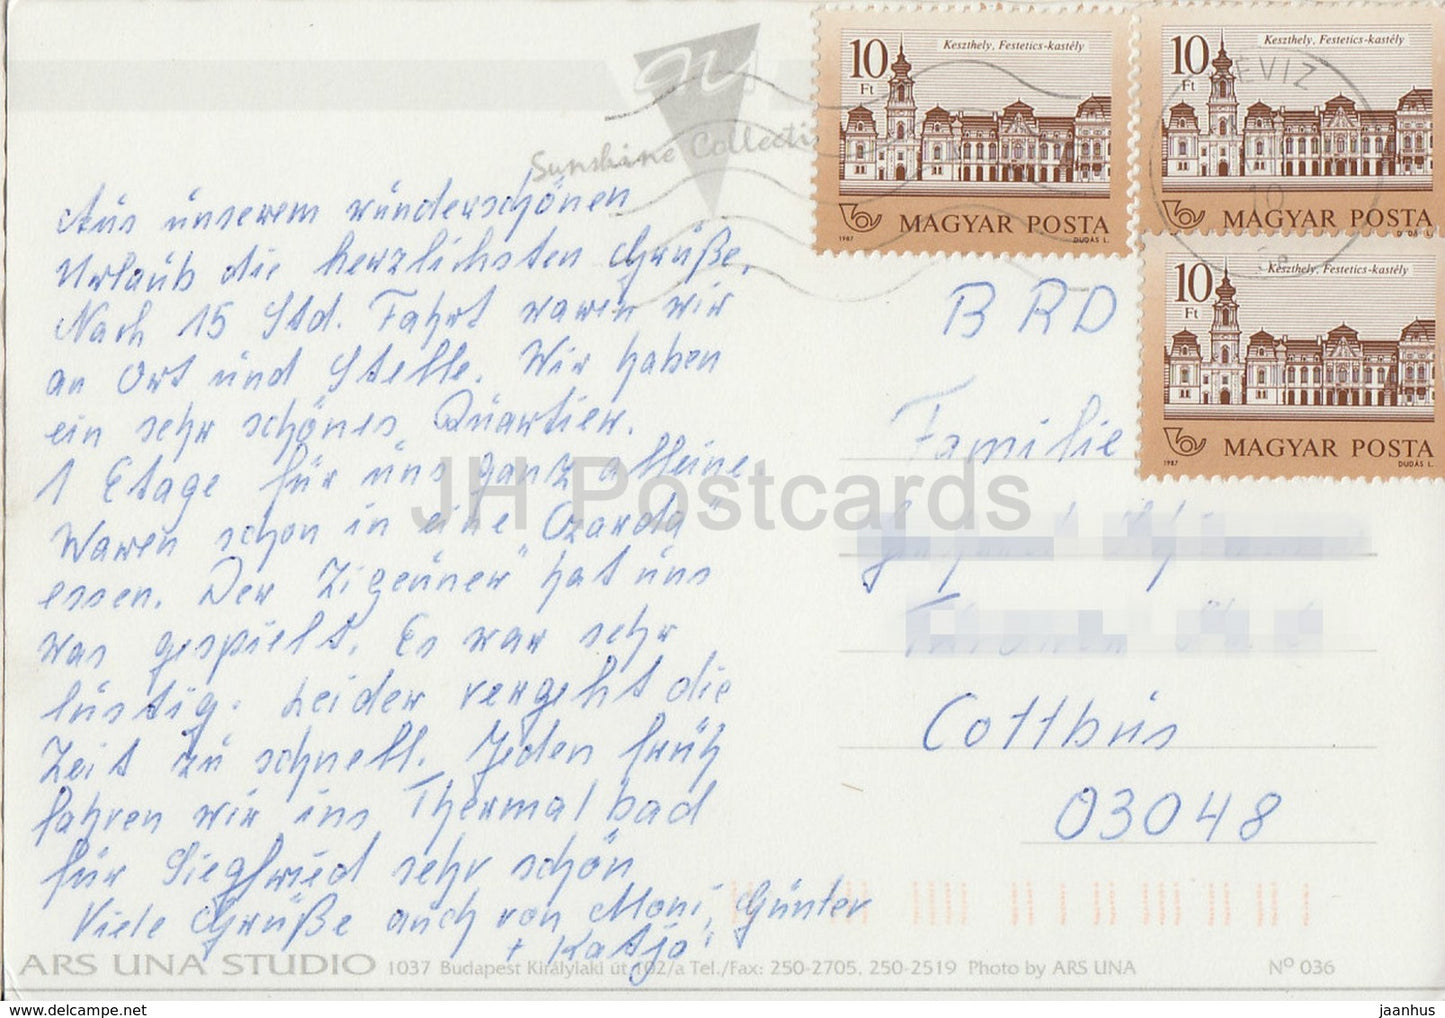 Sunshine Collecti
10
Ft
Keszthely, Festetics-kastély
MAGYAR POSTA
1987
DUDÁS L.
10
Ft
Keszthely, Festetics-kastély
MAGYAR POSTA
DUDÁS L.
ÉVIZ
10
10
Ft
Keszthely, Festetics-kastély
MAGYAR POSTA
1987
DUDÁS L.
Aus unserem wunderschönen
Urlaub die herzlichsten Grüße.
Nach 15 Std. Fahrt waren wir
an Ort und Stelle. Wir haben
ein sehr schönes Quartier.
1 Etage für uns ganz alleine.
Waren schon in eine Czarda"
essen. Der "Zigeuner" hat uns
was gespielt. Es war sehr
lustig. Leider vergeht die
Zeit zu schnell. Jeden früh
fahren wir ins Thermalbad
für Siegfried sehr schön
Viele Grüße auch von Moni, Günter
+ Katja
BRD
Familie
Cottbus
03048
JH Postcards
ARS UNA STUDIO 1037 Budapest Királylaki út 102/a Tel./Fax: 250-2705, 250-2519 Photo by ARS UNA Nº 036
jaanhus